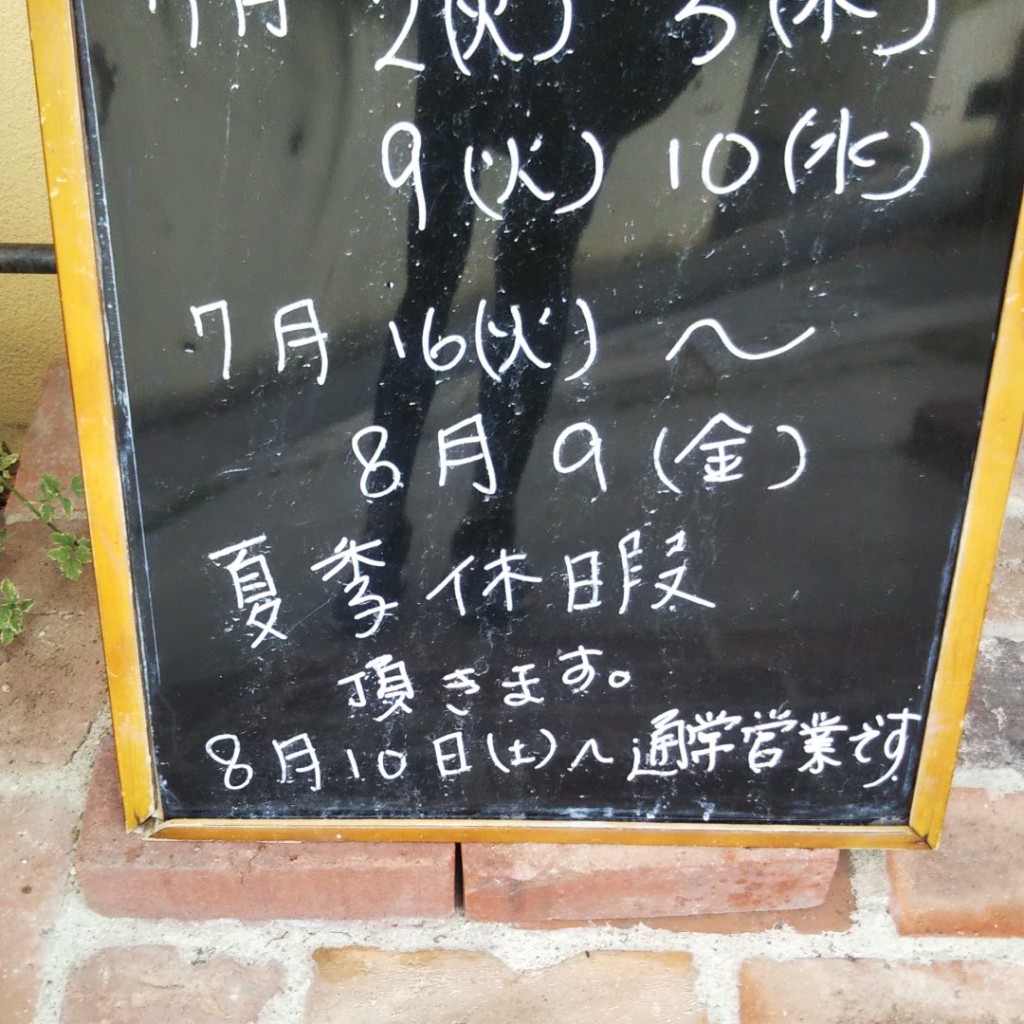 7月 2(火) 3(水)
9(火) 10(水)
7月 16(火) 〜
8月 9(金)
夏季休暇
頂きます。
8月10日(土)〜通学営業です